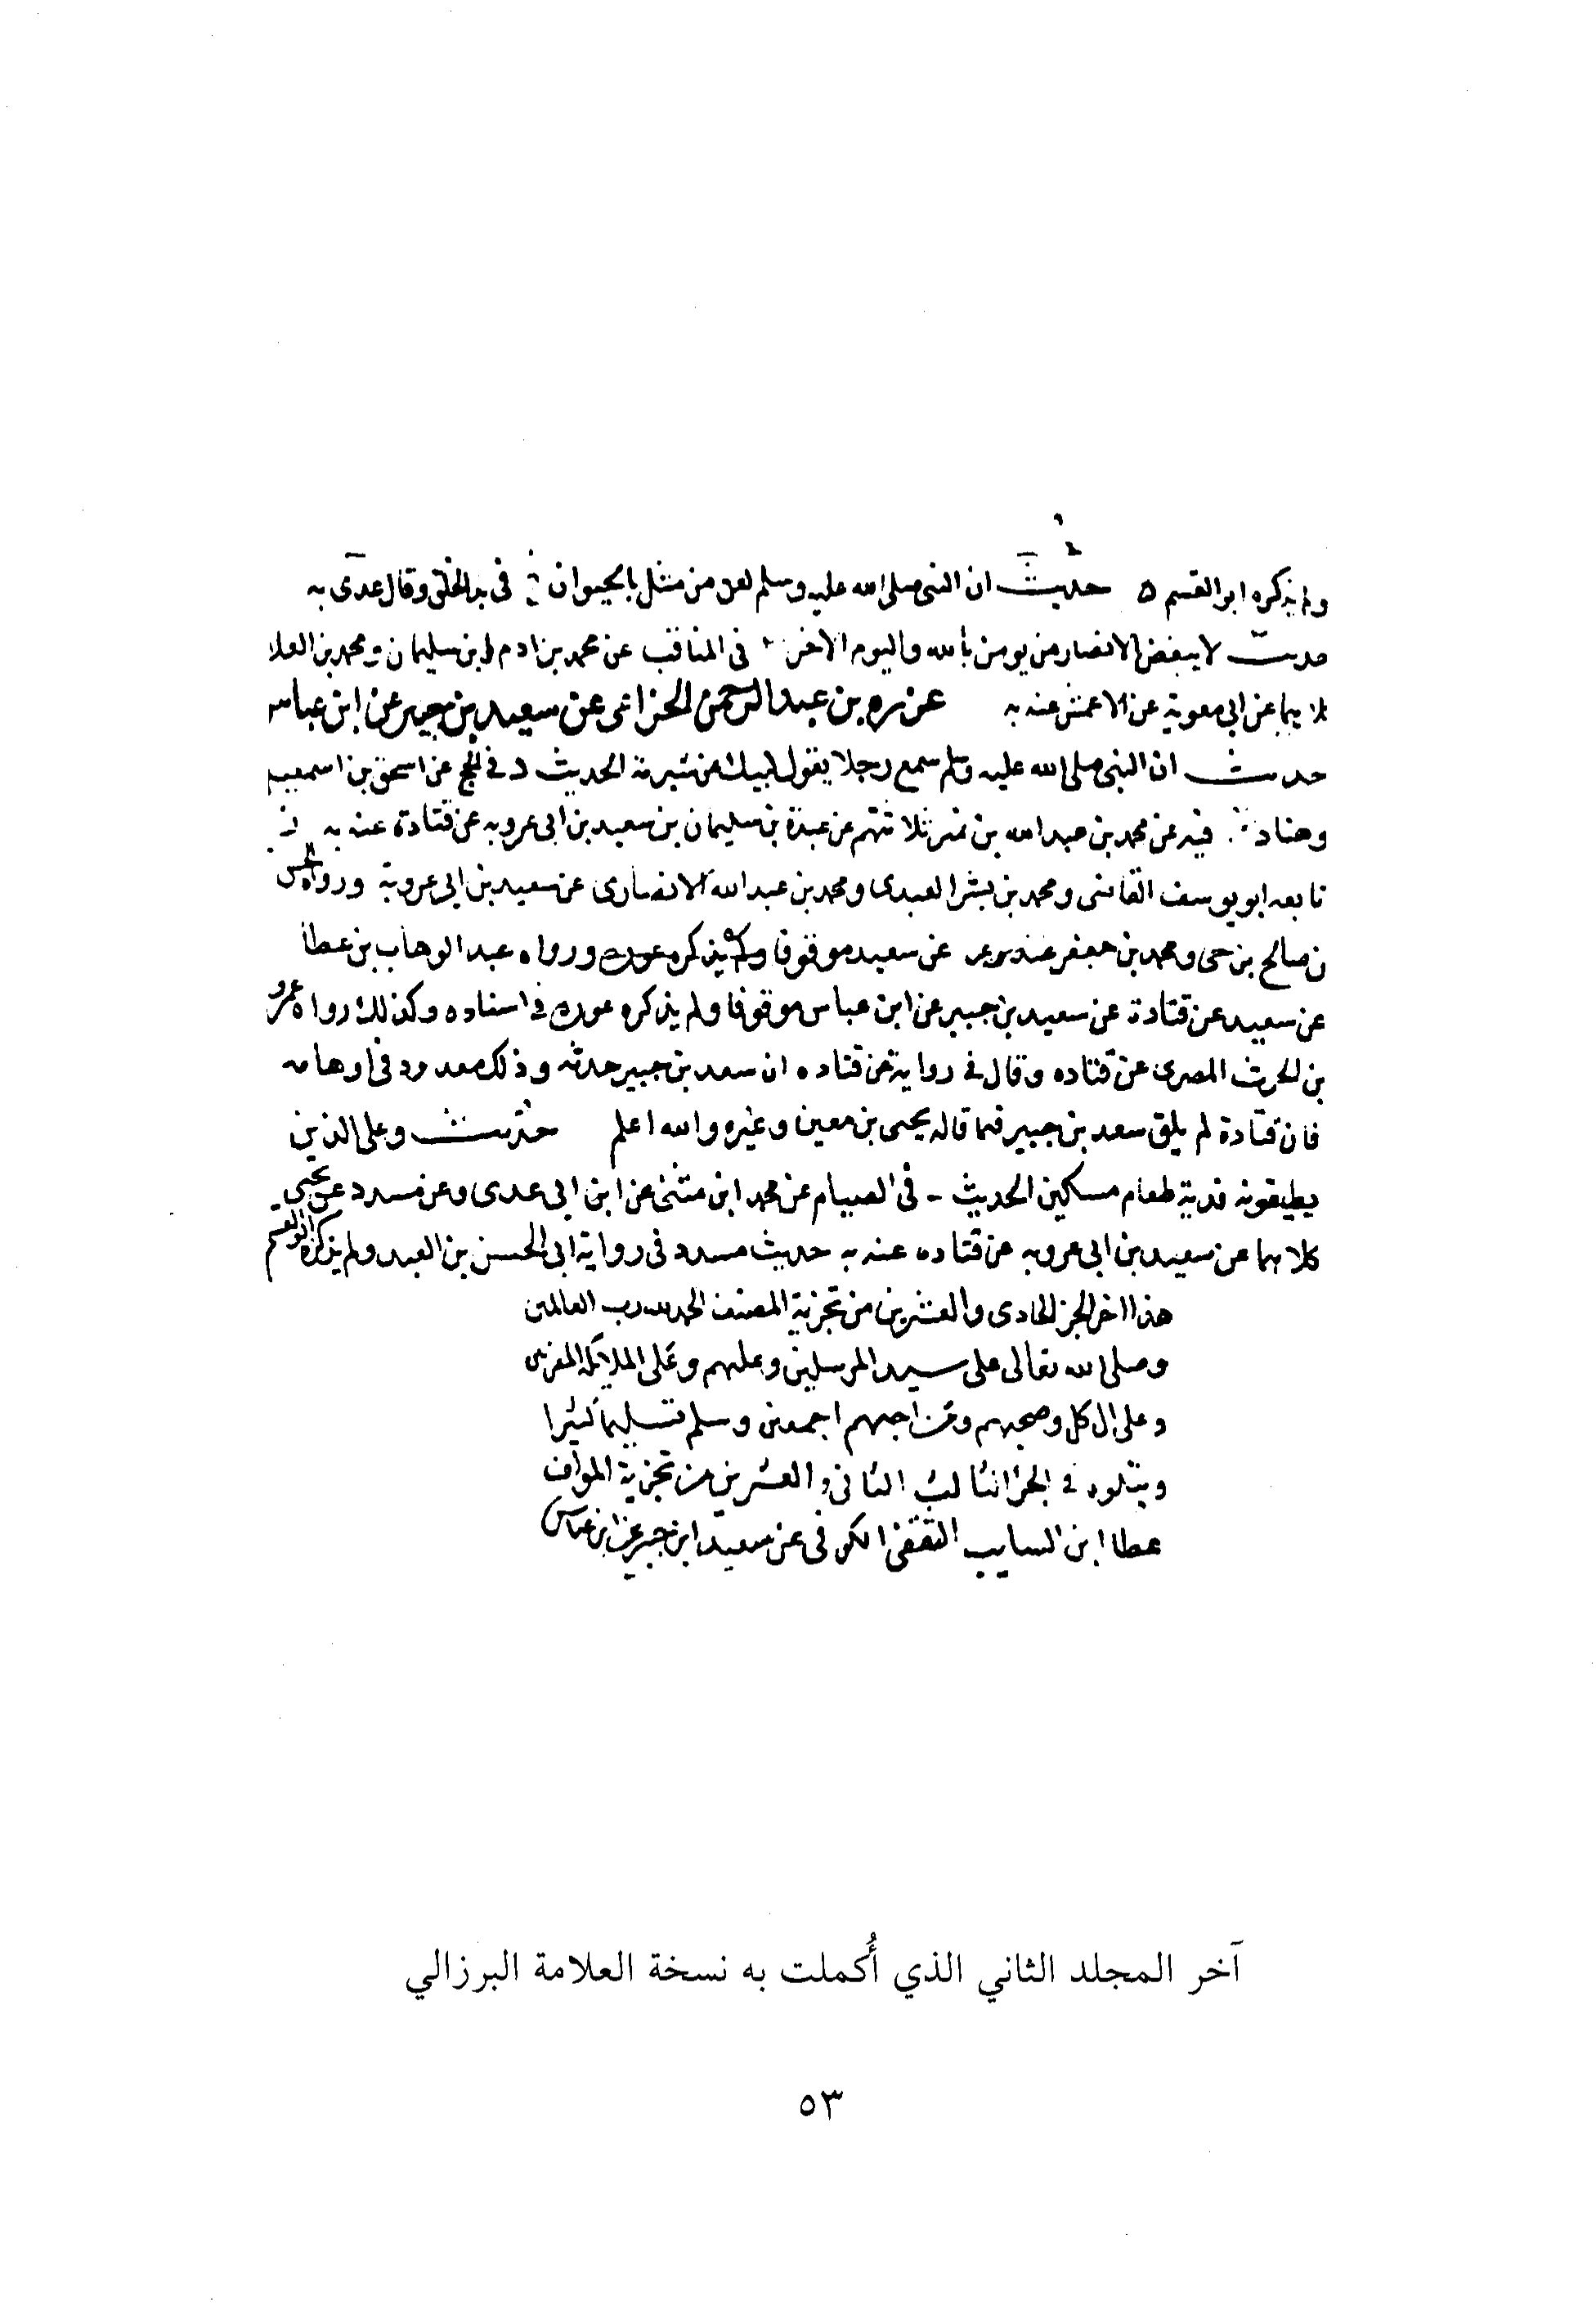 ولم يذكره ابو القسم ٥ حديث ان النبي صلى الله عليه وسلم لعن من مثل بالحيوان في بدالخلق وقال عدى به
حديث لا يبغض الانصار من يومن بالله واليوم الاخر في المناقب عن محمد بن ادم بن سليمان ومحمد بن العلا
كلا يهما عن ابي معوية عن الاعمش عنه به عزره بن عبد الرحمن الخزاعى عن سعيد بن جبير عن ابن عباس
حديث ان النبي صلى الله عليه وسلم سمع رجلا يقول لبيك من شبرمة الحديث د في الحج عن اسحق بن اسمعيل
وهناد فيه عن محمد بن عبد الله بن نمير ثلاثتهم عن عبدة بن سليمان بن سعيد بن ابى عروبه عن قتادة عنه به
تابعه ابو يوسف القاضى ومحمد بن بشر العبدى ومحمد بن عبد الله الانصارى عن سعيد بن ابى عروبة ورواه الحسن
بن صالح بن حى ومحمد بن جعفر غندر عن سعيد موقوفا ورواه عبد الوهاب بن عطا
عن سعيد عن قتادة عن سعيد بن جبير عن ابن عباس موقوفا ولم يذكره عزره في اسناده وكذلك رواه عمرو
بن الحرث المصرى عن قتاده وقال في رواية عن قتاده ان سعد بن جبير حدثه وذلك معدود في اوهامه
فان قتادة لم يلق سعد بن جبير فيما قاله يحيى بن معين وغيره والله اعلم حديث وعلى الذين
يطيقونه فدية طعام مسكين الحديث - في الصيام عن محمد ابن مثنى عن ابن ابي عدى وعن مسدد عن يحيى
كلا هما عن سعيد بن ابى عروبه عن قتاده عنه به حديث مسدد في رواية ابي الحسن بن العبد ولم يذكره ابو القسم
هذا اخر الجز الحادى والعشرين من تجزية المصنف الحمد لله رب العالمين
وصلى الله تعالى على سيد المرسلين وعليهم وعلى الملايكة المقربين
وعلى ال كل وصحبهم ومن احبهم اجمعين وسلم تسليما كثيرا
ويتلوه في الجز الثاني والعشرين من تجزية المولف
عطا ابن السايب الثقفي الكوفى عن سعيد ابن جبير عن ابن عباس
آخر المجلد الثاني الذي أُكملت به نسخة العلامة البرزالي
٥٣